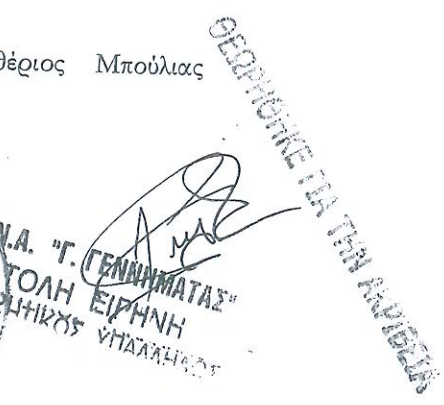 θέριος Μπούλιας
ΘΕΩΡΗΘΗΚΕ ΓΙΑ ΤΗΝ ΑΚΡΙΒΕΙΑ
Ν.Α. "Γ. ΓΕΝΝΗΜΑΤΑΣ"
ΤΟΛΗ ΕΙΡΗΝΗ
ΥΠΑΛΛΗΛΟΣ